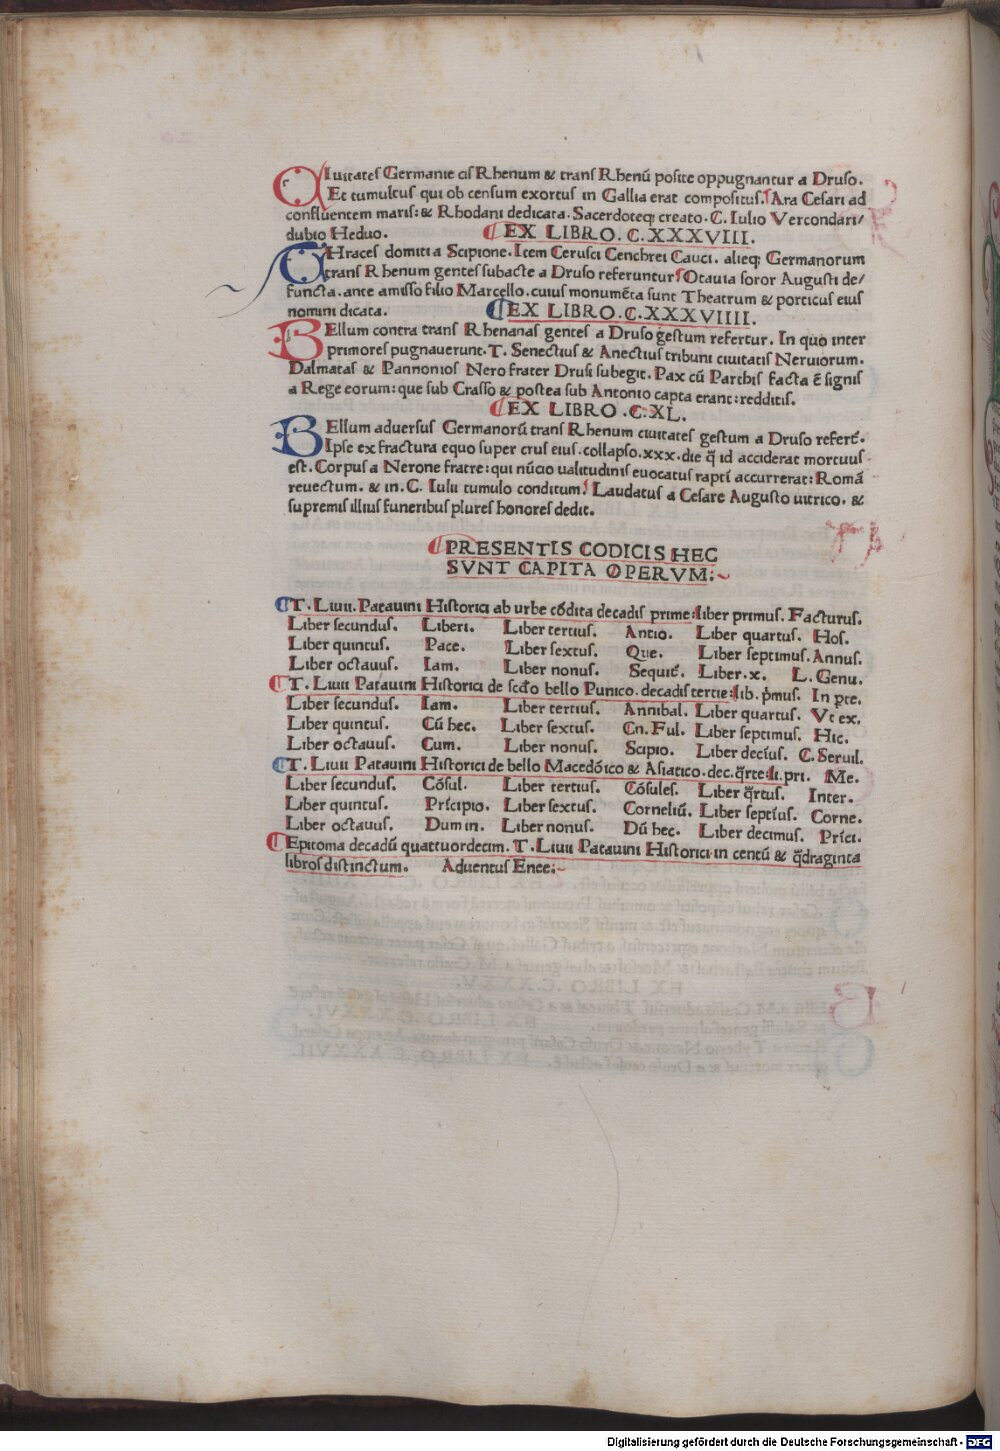 CIuitates Germanie cis Rhenum & trans Rhenū posite oppugnantur a Druso.
Et tumultus qui ob censum exortus in Gallia erat compositus. Ara Cesari ad
confluentem maris: & Rhodani dedicata. Sacerdoteq; creato. C. Iulio Vercondari/
dubio Heduo. EX LIBRO. C.XXXVIII.
CHraces domiti a Scipione. Item Cerusci Cenchrei Cauci. alieq; Germanorum
trans Rhenum gentes subacte a Druso referuntur. Otauia soror Augusti de/
functa. ante amisso filio Marcello. cuius monumēta sunt Theatrum & porticus eius
nomini dicata. EX LIBRO. C.XXXVIIII.
BEllum contra trans Rhenanas gentes a Druso gestum refertur. In quo inter
primores pugnauerunt. T. Senectius & Anectius tribuni ciuitatis Neruiorum.
Dalmatas & Pannonios Nero frater Drusi subegit. Pax cū Parthis facta ē signis
a Rege eorum: que sub Crasso & postea sub Antonio capta erant: redditis.
EX LIBRO .C.XL.
BEllum aduersus Germanorū trans Rhenum ciuitates gestum a Druso referť.
Ipse ex fractura equo super crus eius. collapso. xxx. die q̄ id acciderat mortuus
est. Corpus a Nerone fratre: qui nūcio ualitudinis euocatus rapti accurrerat: Romā
reuectum. & in. C. Iulii tumulo conditum. Laudatus a Cesare Augusto uitrico. &
supremis illius funeribus plures honores dedit.
PRESENTIS CODICIS HEC
SVNT CAPITA OPERVM:
T. Liuii. Patauini Historici ab urbe cōdita decadis prime: liber primus. Facturus.
Liber secundus. Liberi. Liber tertius. Antio. Liber quartus. Hos.
Liber quintus. Pace. Liber sextus. Que. Liber septimus. Annus.
Liber octauus. Iam. Liber nonus. Sequiť. Liber .x. L. Genu.
T. Liuii Patauini Historici de scďo bello Punico. decadis tertie: lib. p̄mus. In pte.
Liber secundus. Iam. Liber tertius. Annibal. Liber quartus. Vt ex.
Liber quintus. Cū hec. Liber sextus. Cn. Ful. Liber septimus. Hic.
Liber octauus. Cum. Liber nonus. Scipio. Liber decīus. C. Seruil.
T. Liuii Patauini Historici de bello Macedōico & Asiatico. dec. q̄rte: li. pri. Me.
Liber secundus. Cōsul. Liber tertius. Cōsules. Liber q̄rtus. Inter.
Liber quintus. Prīcipio. Liber sextus. Corneliū. Liber septīus. Corne.
Liber octauus. Dum in. Liber nonus. Dū hec. Liber decimus. Prīci.
Epitoma decadū quattuordecim. T. Liuii Patauini Historici in centū & q̄draginta
libros distinctum. Aduentus Enee:
Digitalisierung gefördert durch die Deutsche Forschungsgemeinschaft - DFG